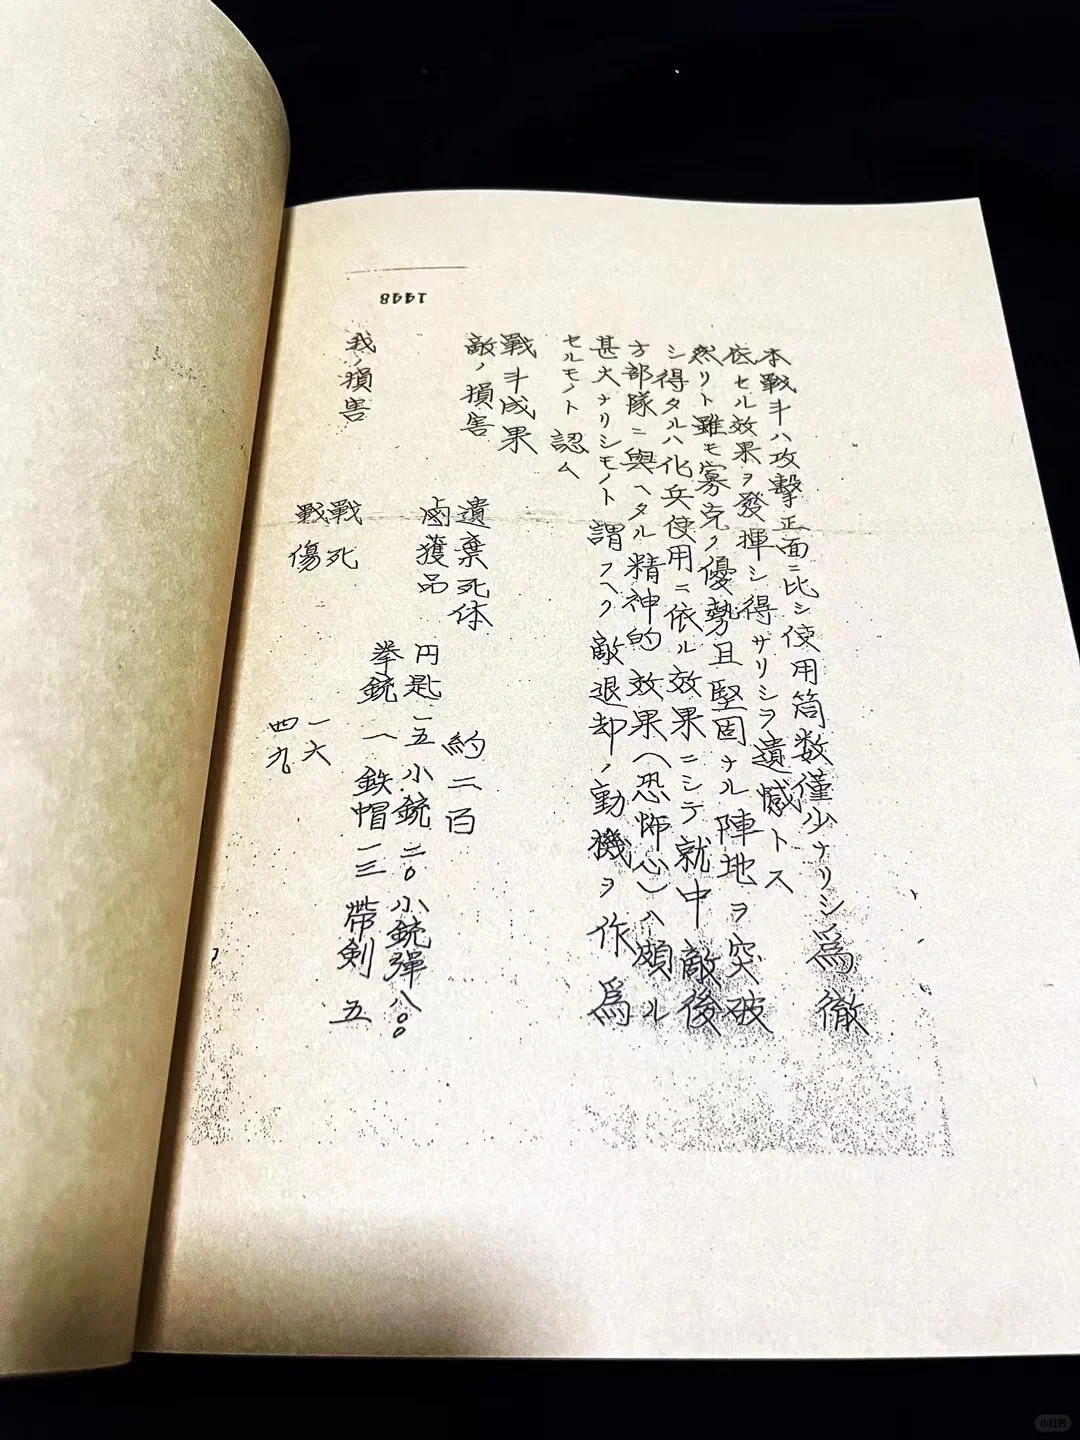 本戦斗ハ攻撃正面ニ比シ使用筒数僅少ナリシ爲徹
底セル效果ヲ發揮シ得サリシヲ遺憾トス
然リト雖モ寡克ク優勢且堅固ナル陣地ヲ突破
シ得タルハ化兵使用ニ依ル效果ニシテ就中敵後
方部隊ニ與ヘタル精神的效果(恐怖心)ハ頗ル
甚大ナリシモノト謂フヘク敵退却ノ動機ヲ作爲
セルモノト認ム
戰斗成果
敵ノ損害
遺棄死体 約二百
鹵獲品 円匙 一五 小銃 二〇 小銃彈 八〇〇
拳銃 一 鉄帽 一三 帶剣 五
我ノ損害
戰死 一六
戰傷 四九
1448
小红书